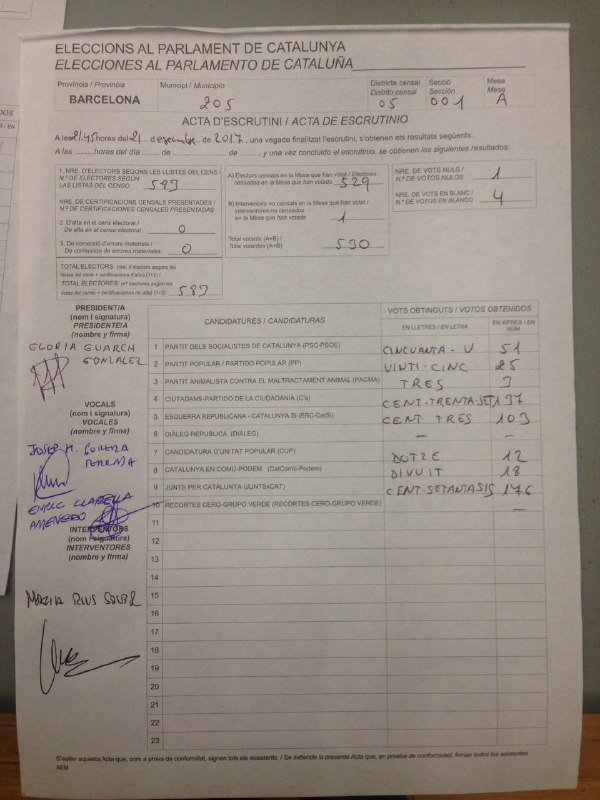 ELECCIONS AL PARLAMENT DE CATALUNYA
ELECCIONES AL PARLAMENTO DE CATALUÑA
Província / Provincia
BARCELONA
Municipi / Municipio
205
Districte censal
Distrito censal
05
Secció
Sección
001
Mesa
Mesa
A
ACTA D'ESCRUTINI / ACTA DE ESCRUTINIO
A les 21.45 hores del 21 de desembre de 2017, una vegada finalitzat l'escrutini, s'obtenen els resultats següents:
A las horas del día de de y una vez concluido el escrutinio, se obtienen los siguientes resultados:
1. NRE. D'ELECTORS SEGONS LES LLISTES DEL CENS /
N.º DE ELECTORES SEGÚN
LAS LISTAS DEL CENSO 583
NRE. DE CERTIFICACIONS CENSALS PRESENTADES /
N.º DE CERTIFICACIONES CENSALES PRESENTADAS
2. D'alta en el cens electoral /
De alta en el censo electoral: 0
3. De correcció d'errors materials /
De corrección de errores materiales: 0
TOTAL ELECTORS: (nre. d'electors segons les
llistes del cens + certificacions d'altes) (1+2) /
TOTAL ELECTORES: (nº electores según las
listas del censo + certificaciones de altas) (1+2) 583
A) Electors censats en la Mesa que han votat / Electores
censados en la Mesa que han votado 529
B) Interventors no censats en la Mesa que han votat /
Interventores no censados
en la Mesa que han votado 1
Total votants (A+B) /
Total votantes (A+B) 530
NRE. DE VOTS NULS /
N.º DE VOTOS NULOS 1
NRE. DE VOTS EN BLANC /
N.º DE VOTOS EN BLANCO 4
PRESIDENT/A
(nom i signatura)
PRESIDENTE/A
(nombre y firma)
GLORIA GUARCH
GONZALEZ
VOCALS
(nom i signatura)
VOCALES
(nombre y firma)
JOSEP M.
ENRIC
INTERVENTORS
(nom i signatura)
INTERVENTORES
(nombre y firma)
RIUS
CANDIDATURES / CANDIDATURAS
VOTS OBTINGUTS / VOTOS OBTENIDOS
EN LLETRES / EN LETRA
EN XIFRES / EN NÚM.
1 PARTIT DELS SOCIALISTES DE CATALUNYA (PSC-PSOE) CINCUANTA-U 51
2 PARTIT POPULAR / PARTIDO POPULAR (PP) VINTI-CINC 25
3 PARTIT ANIMALISTA CONTRA EL MALTRACTAMENT ANIMAL (PACMA) TRES 3
4 CIUTADANS-PARTIDO DE LA CIUDADANÍA (C's) CENT-TRENTA-SET 137
5 ESQUERRA REPUBLICANA - CATALUNYA SÍ (ERC-CatSí) CENT-TRES 103
6 DIÀLEG REPUBLICÀ (DIÀLEG) - -
7 CANDIDATURA D'UNITAT POPULAR (CUP) DOTZE 12
8 CATALUNYA EN COMÚ-PODEM (CatComú-Podem) DIVUIT 18
9 JUNTS PER CATALUNYA (JUNTSxCAT) CENT-SETANTASIS 176
10 RECORTES CERO-GRUPO VERDE (RECORTES CERO-GRUPO VERDE) -
11
12
13
14
15
16
17
18
19
20
21
22
23
S'estén aquesta Acta que, com a prova de conformitat, signen tots els assistents. / Se extiende la presente Acta que, en prueba de conformidad, firman todos los asistentes.
AEM